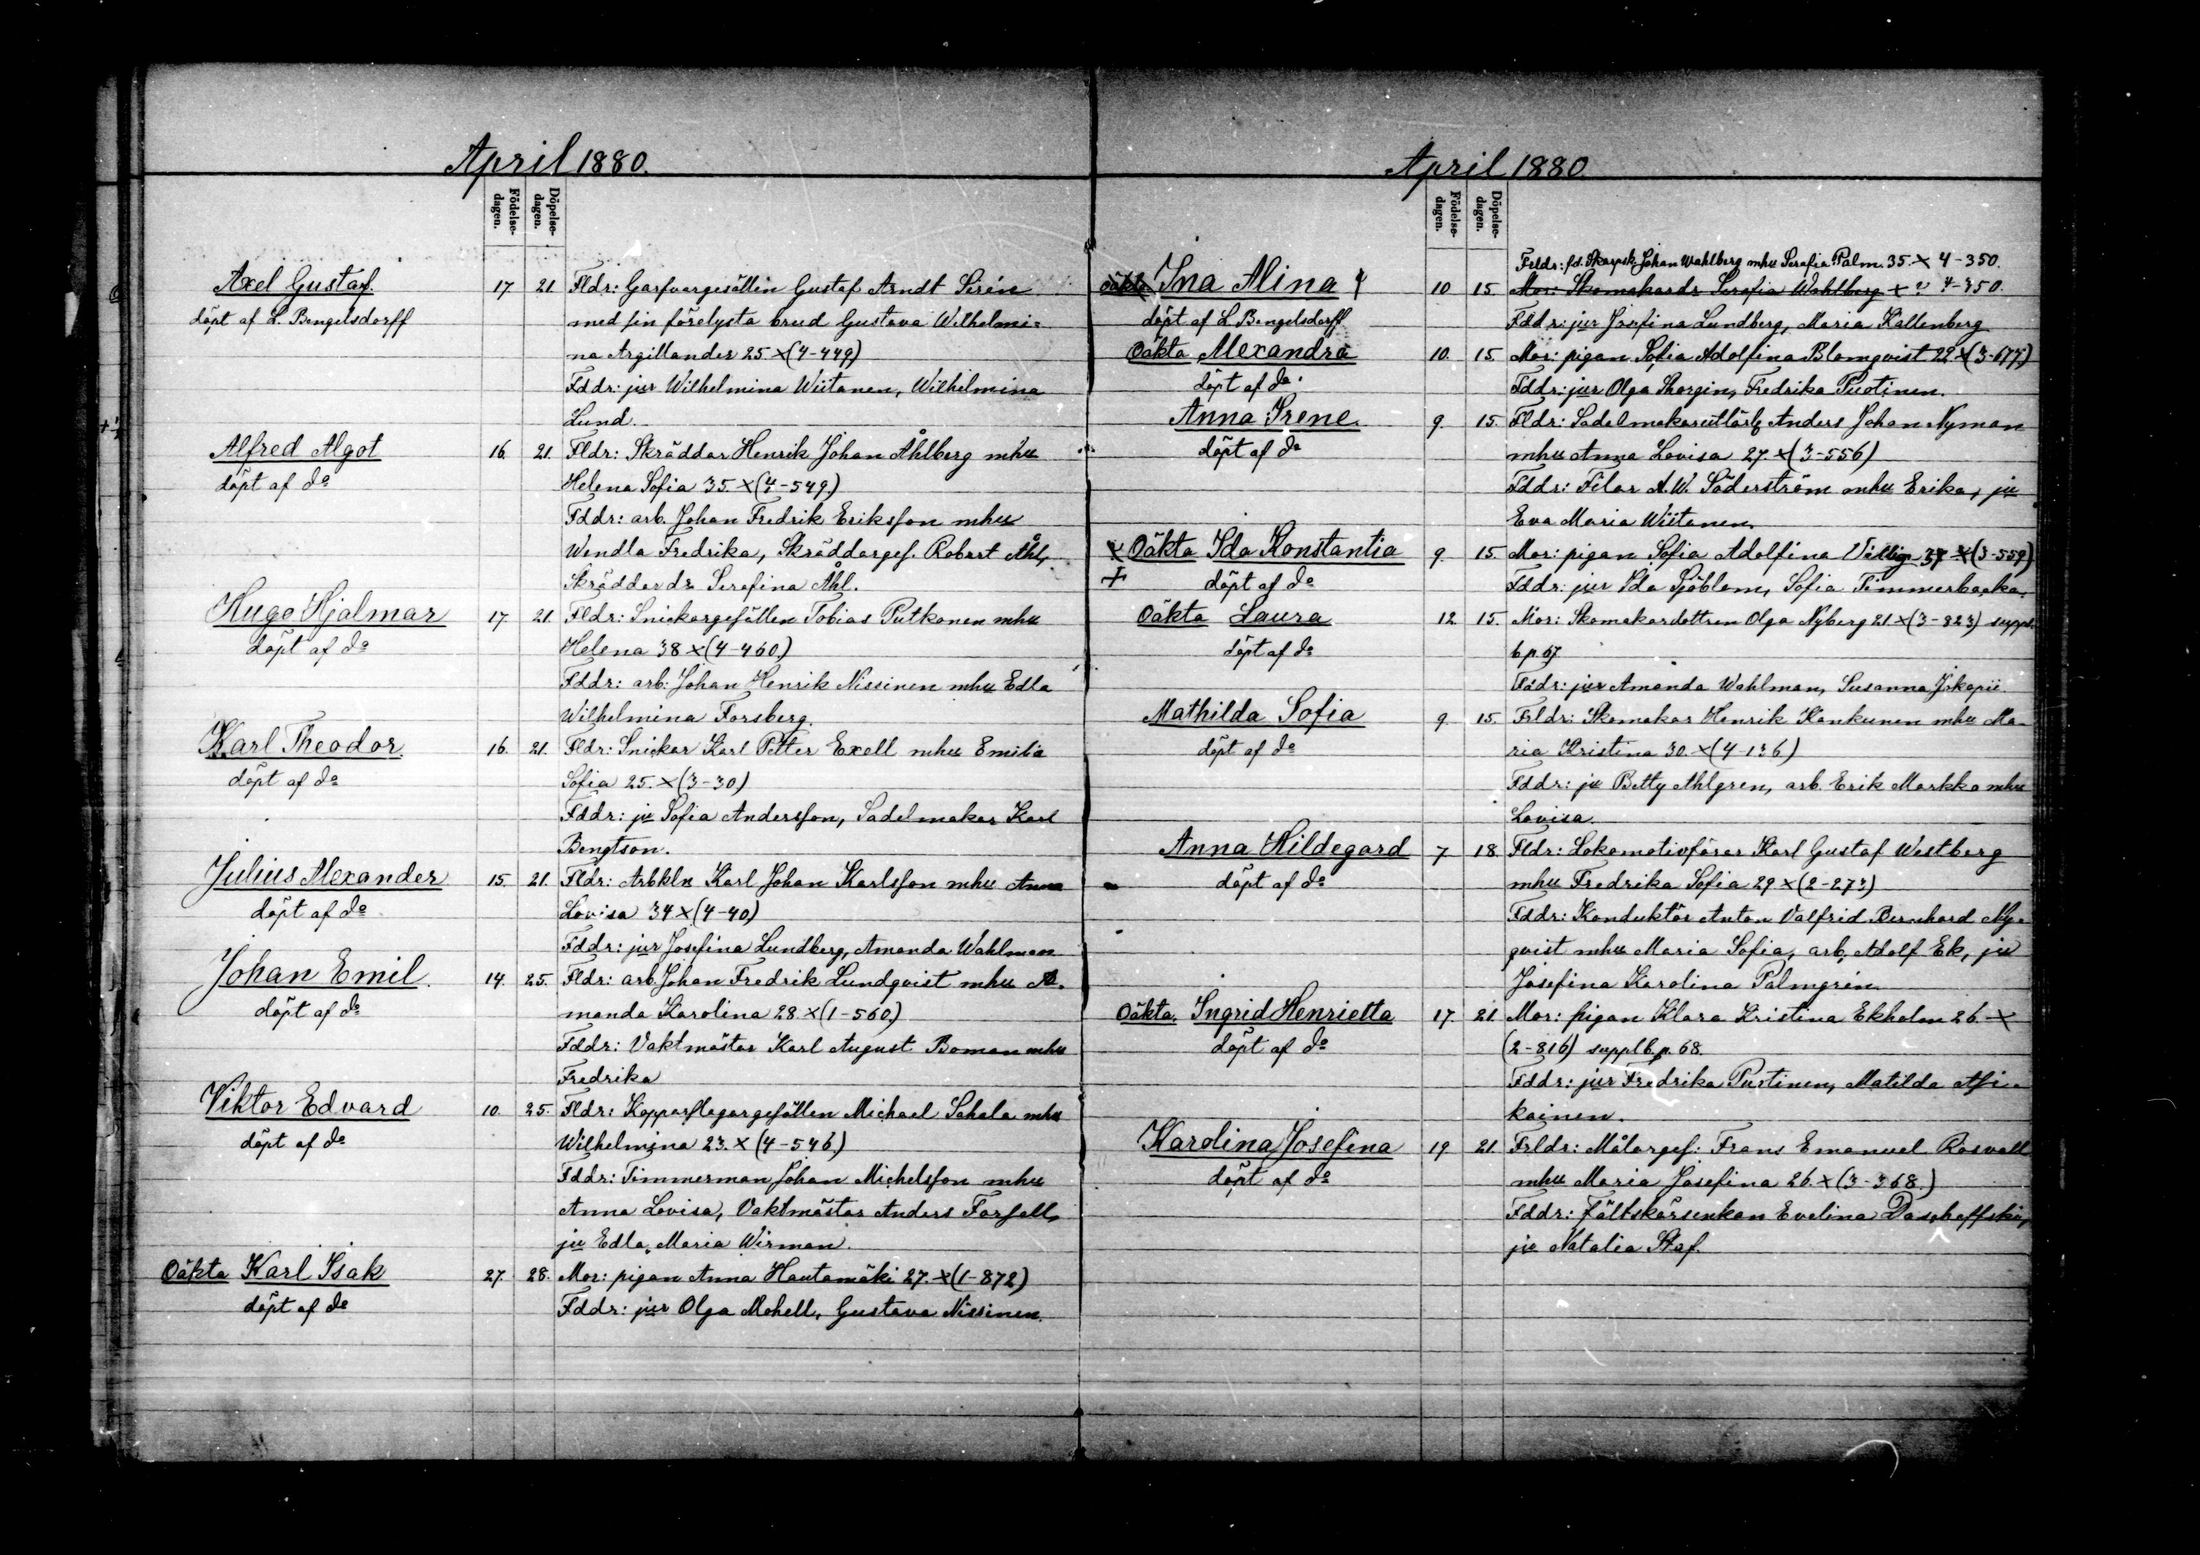 April 1880.
Födelse-dagen.
Döpelse-dagen.
Axel Gustaf. 17 21. Fldr: Garfvaregesällen Gustaf Arndt Serén
döpt af L. Bengelsdorff med sin förelysta brud Gustava Wilhelmi-
na Argillander 25 × (4-449)
Fddr: jur Wilhelmina Wiitanen, Wilhelmina
Lund.
Alfred Algot 16 21. Fldr: Skräddar Henrik Johan Åhlberg mhu
döpt af do Helena Sofia 35. × (4-549.)
Fddr: arb. Johan Fredrik Eriksson mhu
Wendla Fredrika, Skräddarges. Robert Åhl,
Skräddar dr Serafina Åhl.
Hugo Hjalmar 17. 21. Fldr: Snickargesällen Tobias Putkonen mhu
döpt af do Helena 38 × (4-460)
Fddr: arb: Johan Henrik Nissinen mhu Edla
Wilhelmina Forsberg.
Karl Theodor. 16. 21. Fldr: Snickar Karl Petter Exell mhu Emilia
döpt af do Sofia 25. × (3-30)
Fddr: ju Sofia Andersson, Sadelmakar Karl
Bengtson.
Julius Alexander 15. 21. Fldr: Arbkln Karl Johan Karlsson mhu Anna
döpt af do Lovisa 34 × (4-40)
Fddr: jur Josefina Lundberg, Amanda Wahlman
Johan Emil. 14. 25. Fldr: arb. Johan Fredrik Lundqvist mhu A-
döpt af do manda Karolina 28. × (1-560.)
Fddr: Vaktmästar Karl August Boman mhu
Fredrika
Viktor Edvard 10. 25. Fldr: Kopparslagargesällen Michael Sahala mhu
döpt af do Wilhelmina 23. × (4-546.)
Fddr: Timmerman Johan Michelsson mhu
Anna Lovisa, Vaktmästar Anders Forsell,
ju Edla Maria Wirman.
Oäkta Karl Isak 27. 28. Mor: pigan Anna Hautamäki 27. × (1-872)
döpt af do Fddr: jur Olga Mohell, Gustava Nissinen.
April 1880
Födelse-dagen.
Döpelse-dagen.
Frldr: fd. Skarpsk Johan Wahlberg mhu Serafia Palm. 35. × 4-350.
Oäkta Ina Alina 10 15. Mor: Skomakardr Serafia Wahlberg × ? 4-350.
döpt af L Bengelsdorff Fddr: jur Josefina Lundberg, Maria Kallenberg
Oäkta Alexandra 10. 15. Mor: pigan Sofia Adolfina Blomqvist 22 × (3-677)
döpt af do. Fddr: jur Olga Skorgin, Fredrika Puotinen.
Anna Irene. 9. 15. Fldr: Sadelmakareutlärl Anders Johan Nyman
döpt af do mhu Anna Lovisa 27. × (3-556)
Fddr: Filar A.W. Söderström mhu Erika, ju
Eva Maria Wiitanen.
× Oäkta Ida Konstantia 9. 15. Mor: pigan Sofia Adolfina 37 × (3-559)
+ döpt af do Fddr: jur Ida Sjöblom, Sofia Timmerbacka.
Oäkta Laura 12 15. Mor: Skomakardottren Olga Nyberg 21 × (3-823) suppl.
döpt af do b.p. 67.
Fddr: jur Amanda Wahlman, Susanna
Mathilda Sofia 9. 15. Frldr: Skomakar Henrik Kankunen mhu Ma-
döpt af do ria Kristina 30. × (4-136)
Fddr: ju Betty Ahlgren, arb. Erik Markko mhu
Lovisa.
Anna Hildegard 7 18. Fldr: Lokomotivförar Karl Gustaf Westberg
döpt af do mhu Fredrika Sofia 29 × (2-273)
Fddr: Konduktör Anton Valfrid Bernhard Ny-
qvist mhu Maria Sofia, arb. Adolf Ek, ju
Josefina Karolina Palmgren.
Oäkta. Ingrid Henrietta 17. 21. Mor: pigan Klara Kristina Ekholm 26. ×
döpt af do (2-816) suppl b.p. 68.
Fddr: jur Fredrika Pustinen, Matilda Asi-
kainen.
Karolina Josefina 19 21. Frldr: Målarges: Frans Emanuel Rosvall
döpt af do mhu Maria Josefina 26. × (3-368.)
Fddr: Fältskärsenkan Evelina
ju Natalia Staf.